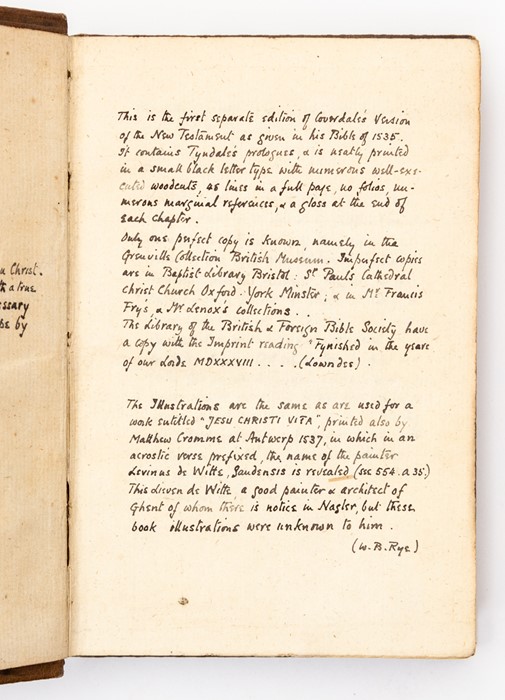 This is the first separate edition of Coverdale's Version
of the New Testament as given in his Bible of 1535.
It contains Tyndale's prologues, & is neatly printed
in a small black letter type with numerous well-exe-
cuted woodcuts, 45 lines in a full page, no folios, nu-
merous marginal references, & a gloss at the end of
each Chapter.
Only one perfect copy is known, namely in the
Grenville Collection British Museum. Imperfect copies
are in Baptist Library Bristol: St Paul's Cathedral
Christ Church Oxford: York Minster; & in Mr Francis
Fry's & Mr Lenox's collections..
The Library of the British & Foreign Bible Society have
a copy with the Imprint reading "Fynished in the yeare
of our Lorde MDXXXVIII .... (Lowndes).
The Illustrations are the same as are used for a
work entitled "JESU CHRISTI VITA", printed also by
Matthew Cromme at Antwerp 1537, in which in an
acrostic verse prefixed, the name of the painter
Levinus de Witte, Gandensis is revealed (see 554.a.35.)
This Lieven de Witte, a good painter & architect of
Ghent of whom there is notice in Nagler, but these
book illustrations were unknown to him.
(W. B. Rye)
u Christ.
th a true
essary
pe by